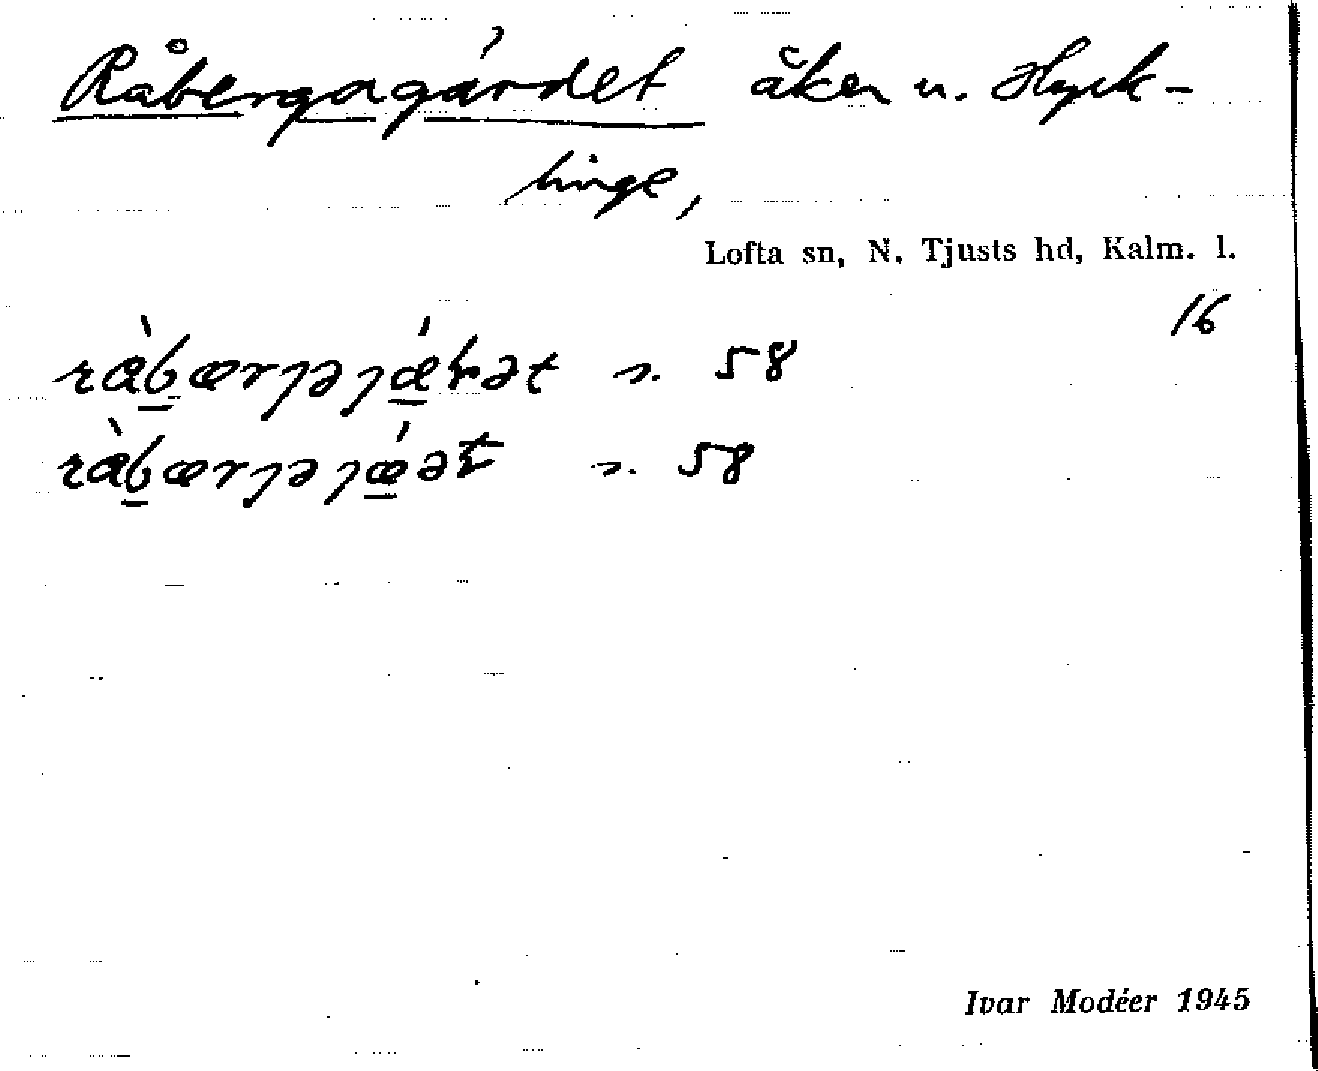 Råbergagärdet åker u. Hyck-
linge,
Lofta sn, N. Tjusts hd, Kalm. l.
16
s. 58
s. 58
Ivar Modéer 1945